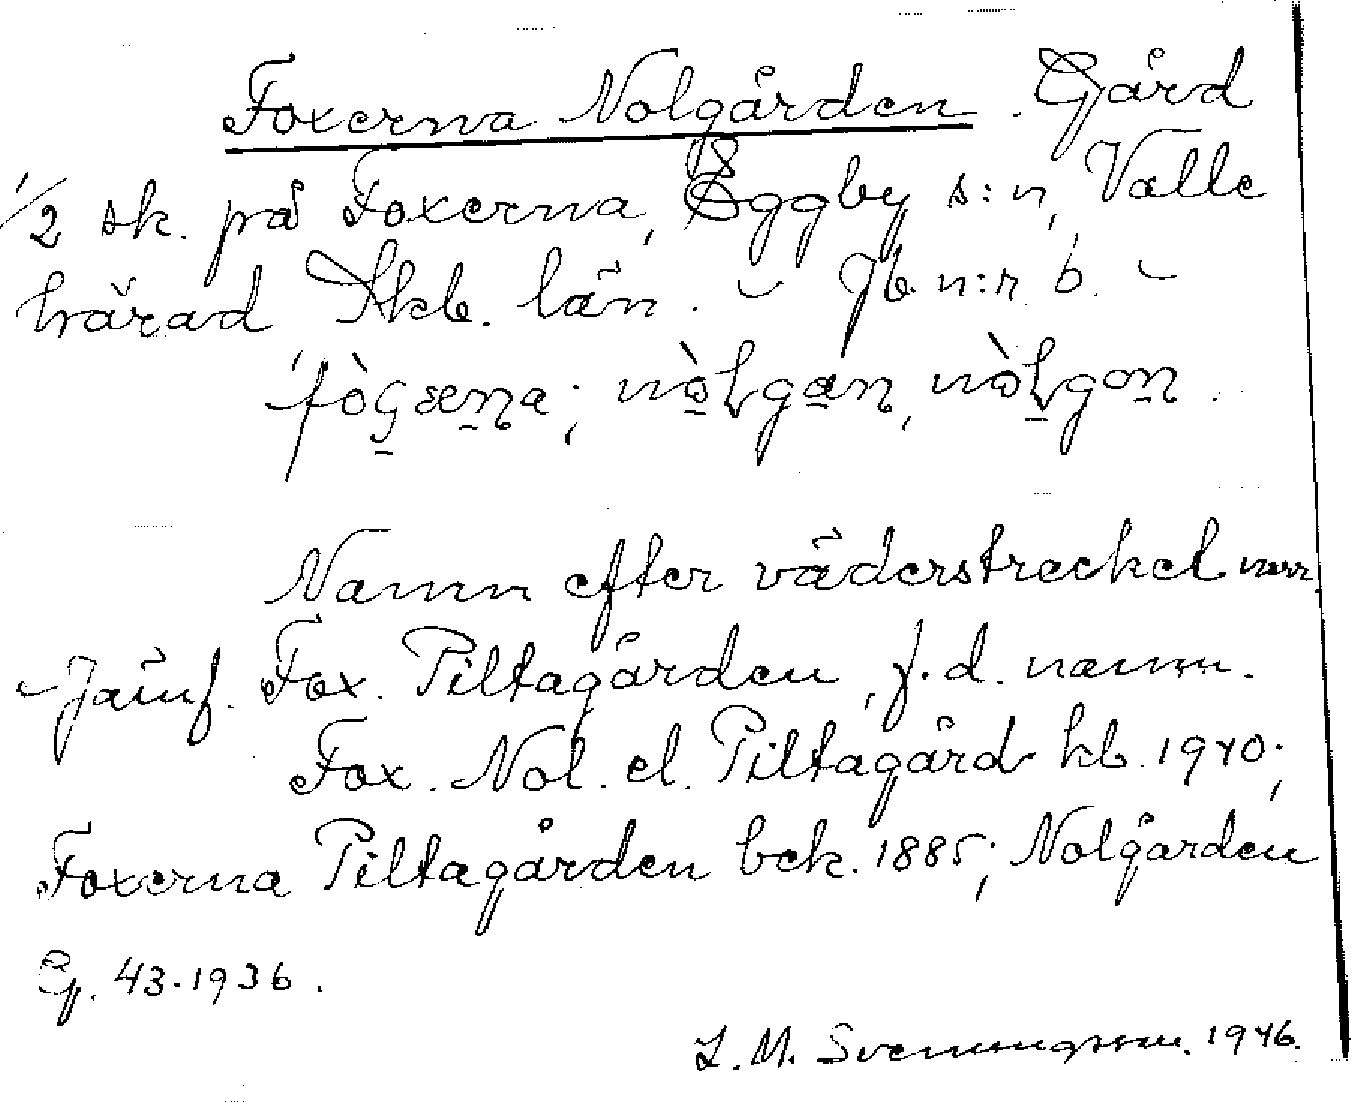 Foxerna Nolgården. Gård
1/2 sk. på Foxerna, Eggby s:n, Valle
härad Skb. län. - Jb n:r 6. -
Namn efter väderstrecket norr
- Jämf. Fox. Piltagården, f.d. namn.
Fox. Nol. el. Piltagård kb. 1940;
Foxerna Piltagården bek. 1885; Nolgården
G. 43. 1936.
L. M. Svenungsson. 1946.